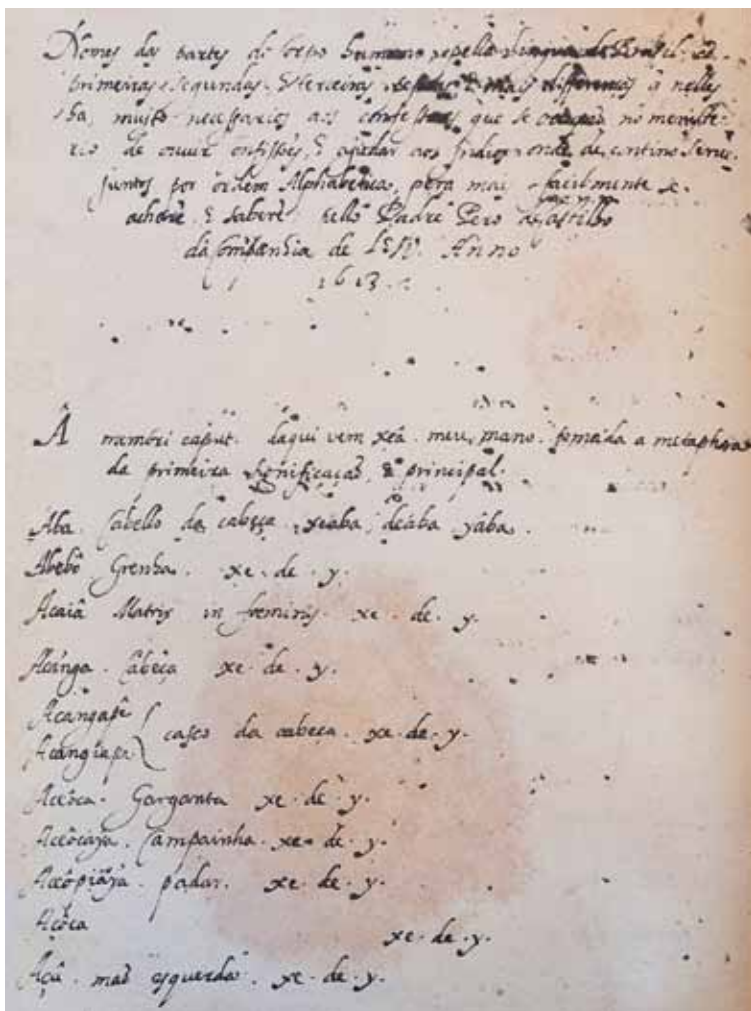 Nomes das partes do corpo humano pella lingua do Brasil cõ
primeiras, segundas, & terceiras & mais differenças q̃ nelles
ha, muito necessarios aos confessores que se occupão no ministe-
rio de ouuir confissões, & ajudar aos Indios onde de contino serue.
juntos por ordem Alphabetica, pera mais facilmente se
acharẽ & saberẽ. Pello Padre Pero de Castilho
da Companhia de IESV. Anno
1613.
Â membri caput. daqui vem xeâ. meu mano. tomada a metaphora
da primeira significação, & principal.
Aba. Cabello da cabeça. xeaba, deába yába.
Abebô Grenha. xe. de. y.
Acaiâ Matrix in fœminis. xe. de. y.
Acánga. Cabeça xe. de. y.
Acangapê
Acangiapê casco da cabeça. xe. de. y.
Aceôca. Garganta xe. de. y.
Aceôcaŷa. Campainha. xe. de. y.
Aceôpiâŷâ. padar. xe. de. y.
Açôca xe. de. y.
Açû. maõ esquerda. xe. de. y.